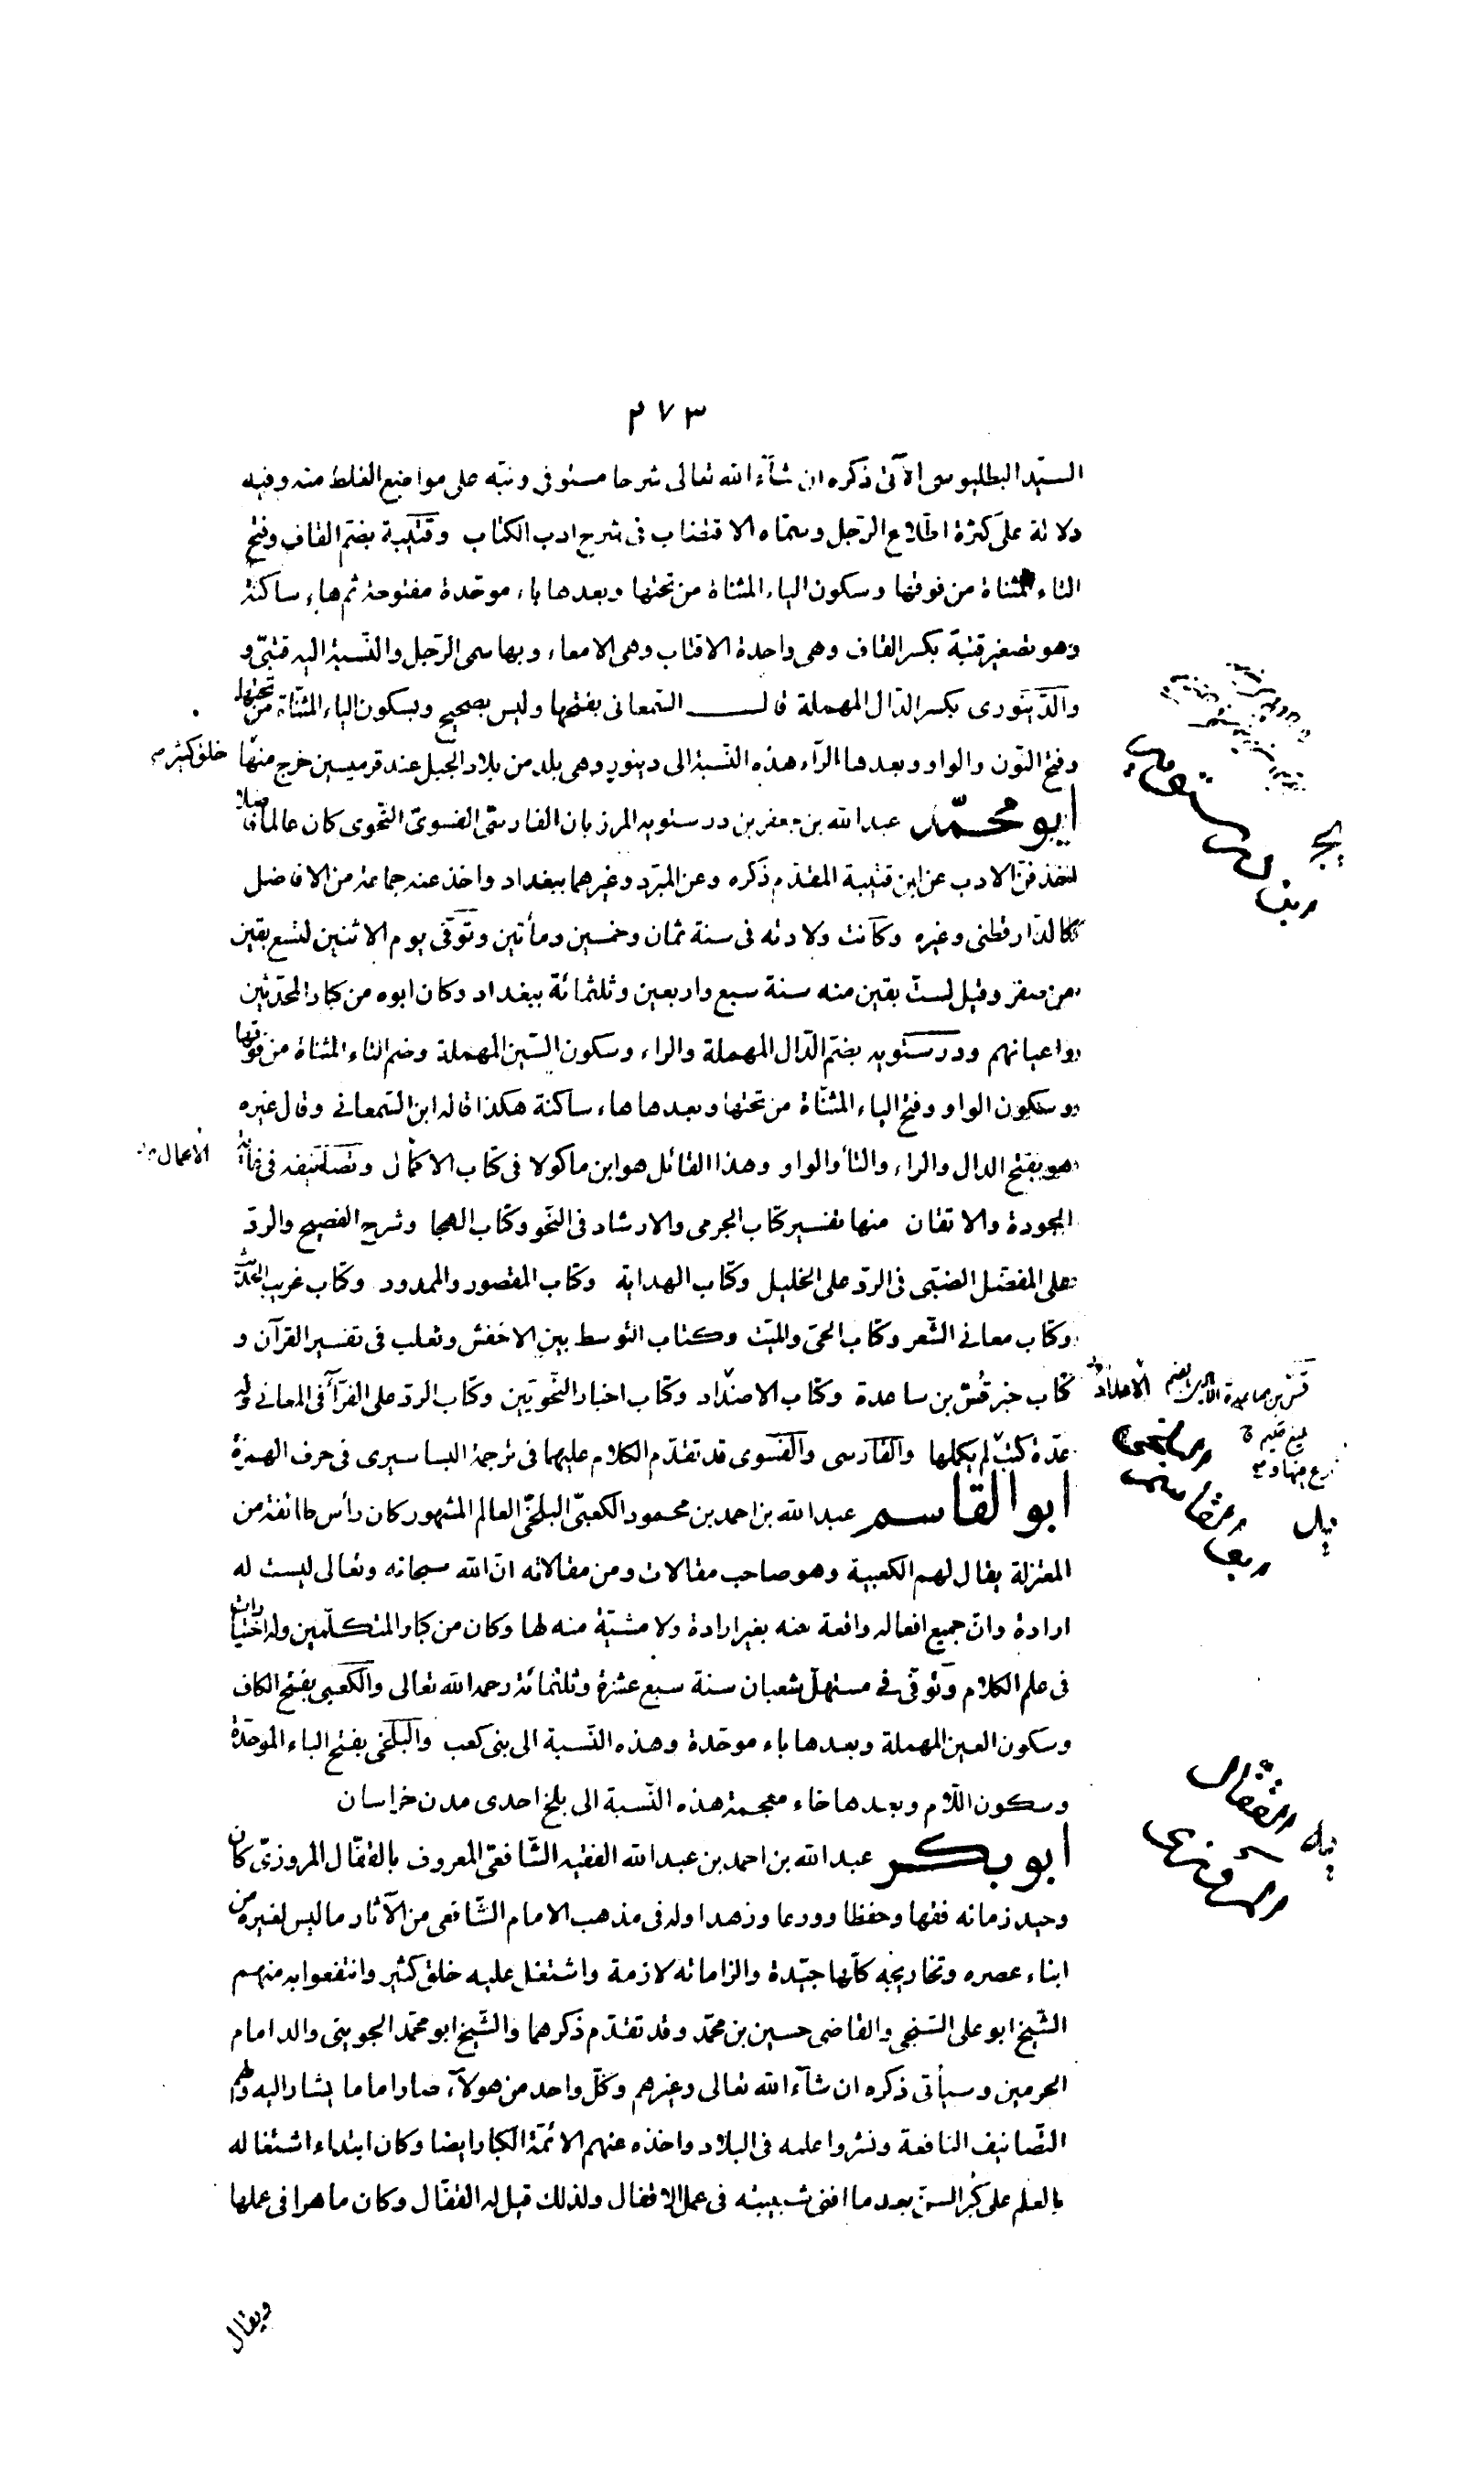 ٢٧٣
السيّد البطليوسى الآتى ذكره ان شآء الله تعالى شرحا مستوفى ونبّه على مواضع الغلط منه وفيه
دلالة على كثرة اطلاع الرّجل وسمّاه الاقتضاب فى شرح ادب الكتاب وقتيبة بضمّ القاف وفتح
التاء المثناة من فوقها وسكون الياء المثناة من تحتها وبعدها باء موحّدة مفتوحة ثم هاء ساكنة
وهو تصغير قتبة بكسر القاف وهى واحدة الاقتاب وهى الامعاء وبها سمى الرّجل والنّسبة اليه قتبىّ و
والدّينورى بكسر الدّال المهملة قال السّمعانى بفتحها وليس بصحيح وبسكون الياء المثنّاة من تحتها
وفتح النّون والواو وبعدها الرّاء هذه النّسبة الى دينور وهى بلد من بلاد الجبل عند قرميسين خرج منها خلق كثير
ابو محمّد عبد الله بن جعفر بن درستويه المرزبان الفارسىّ الفسوىّ النّحوى كان عالما فاضلا
اخذ فنّ الادب عن ابن قتيبة المقدّم ذكره وعن المبرّد وغيرهما ببغداد واخذ عنه جماعة من الافاضل
كالدّارقطنى وغيره وكانت ولادته فى سنة ثمان وخمسين ومأتين وتوفّى يوم الاثنين لتسع بقين
من صفر وقيل لستّ بقين منه سنة سبع واربعين وثلثمائة ببغداد وكان ابوه من كبار المحدّثين
واعيانهم ودرستويه بضمّ الدّال المهملة والراء وسكون السّين المهملة وضم التاء المثناة من فوقها
وسكون الواو وفتح الياء المثنّاة من تحتها وبعدها هاء ساكنة هكذا قاله ابن السّمعانى وقال غيره
هو بفتح الدال والراء والتأ والواو وهذا القائل هو ابن ماكولا فى كتاب الاكمال وتصانيفه فى غاية
الجودة والاتقان منها تفسير كتاب الجرمى والارشاد فى النّحو وكتاب الهجا وشرح الفصيح والردّ
على المفضّل الضبّى فى الردّ على الخليل وكتاب الهداية وكتاب المقصور والممدود وكتاب غريب الحديث
وكتاب معانى الشّعر وكتاب الحىّ والميّت وكتاب التوسط بين الاخفش وثعلب فى تفسير القرآن و
كتاب خبر قُسّ بن ساعدة وكتاب الاضداد وكتاب اخبار النّحويّين وكتاب الردّ على الفرّآء فى المعانى وله
عدّة كتب لم يكملها والفارسى والفسوى قد تقدّم الكلام عليهما فى ترجمة البساسيرى فى حرف الهمزة
ابو القاسم عبد الله بن احمد بن محمود الكعبىّ البلخىّ العالم المشهور كان رأس طائفة من
المعتزلة يقال لهم الكعبية وهو صاحب مقالات ومن مقالاته انّ الله سبحانه وتعالى ليست له
ارادة وانّ جميع افعاله واقعة عنه بغير ارادة ولا مشيّة منه لها وكان من كبار المتكلّمين وله اختيارات
فى علم الكلام وتوفّى فى مستهلّ شعبان سنة سبع عشرة وثلثمائة رحمه الله تعالى والكعبى بفتح الكاف
وسكون العين المهملة وبعدها باء موحّدة وهذه النّسبة الى بنى كعب والبلخى بفتح الباء الموحّدة
وسكون اللّام وبعدها خاء معجمة هذه النّسبة الى بلخ احدى مدن خراسان
ابو بكر عبد الله بن احمد بن عبد الله الفقيه الشّافعىّ المعروف بالقفّال المروزىّ كان
وحيد زمانه فقها وحفظا وورعا وزهدا وله فى مذهب الامام الشّافعى من الآثار ما ليس لغيره من
ابناء عصره وتخاريجه كلّها جيّدة والزاماته لازمة واشتغل عليه خلق كثير وانتفعوا به منهم
الشّيخ ابو على السّنجى والقاضى حسين بن محمّد وقد تقدّم ذكرهما والشّيخ ابو محمّد الجوينى والد امام
الحرمين وسيأتى ذكره ان شآء الله تعالى وغيرهم وكلّ واحد من هولآء صار اماما يشار اليه ولهم
التّصانيف النافعة ونشروا علمه فى البلاد واخذه عنهم الائمّة الكبار ايضا وكان ابتداء اشتغاله
بالعلم على كبر السنّ بعد ما افنى شبيبته فى عمل الاقفال ولذلك قيل له القفّال وكان ماهرا فى عملها
ويقال